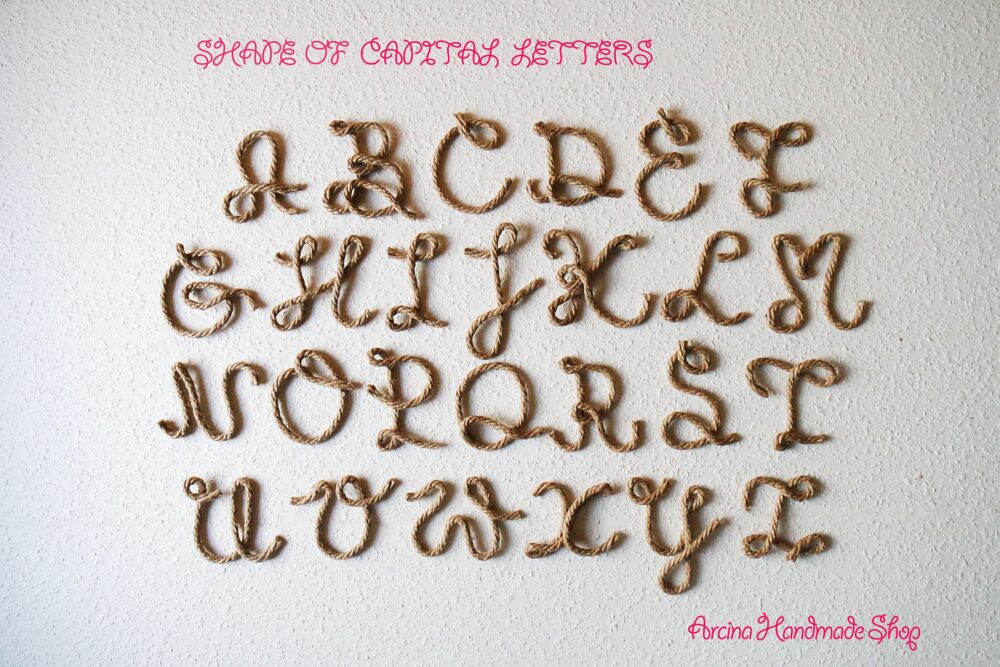 SHAPE OF CAPITAL LETTERS
A B C D E F
G H I J K L M
N O P Q R S T
U V W X Y Z
Arcina Handmade Shop